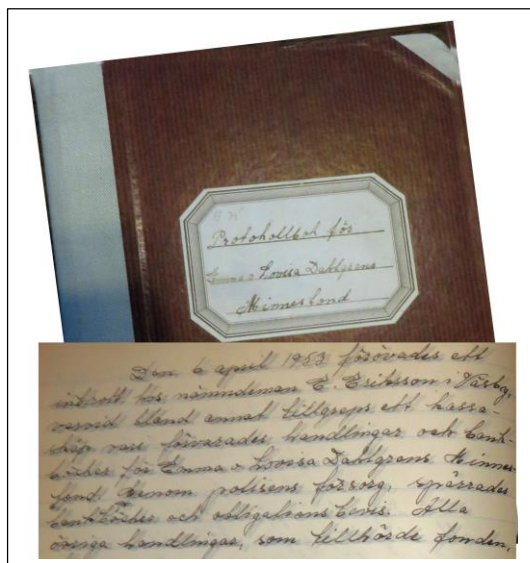 Protokollbok för
Emma o Lovisa Dahlgrens
Minnesfond
Den 6 april 1953 förövades ett
inbrott hos nämndeman E. Eriksson i Västby,
varvid bland annat tillgreps ett kassa-
skåp vari förvarades handlingar och bank-
böcker för Emma o Lovisa Dahlgrens Minnes-
fond. Genom polisens försorg spärrades
bankböcker och obligationsbevis. Alla
övriga handlingar, som tillhörde fonden,